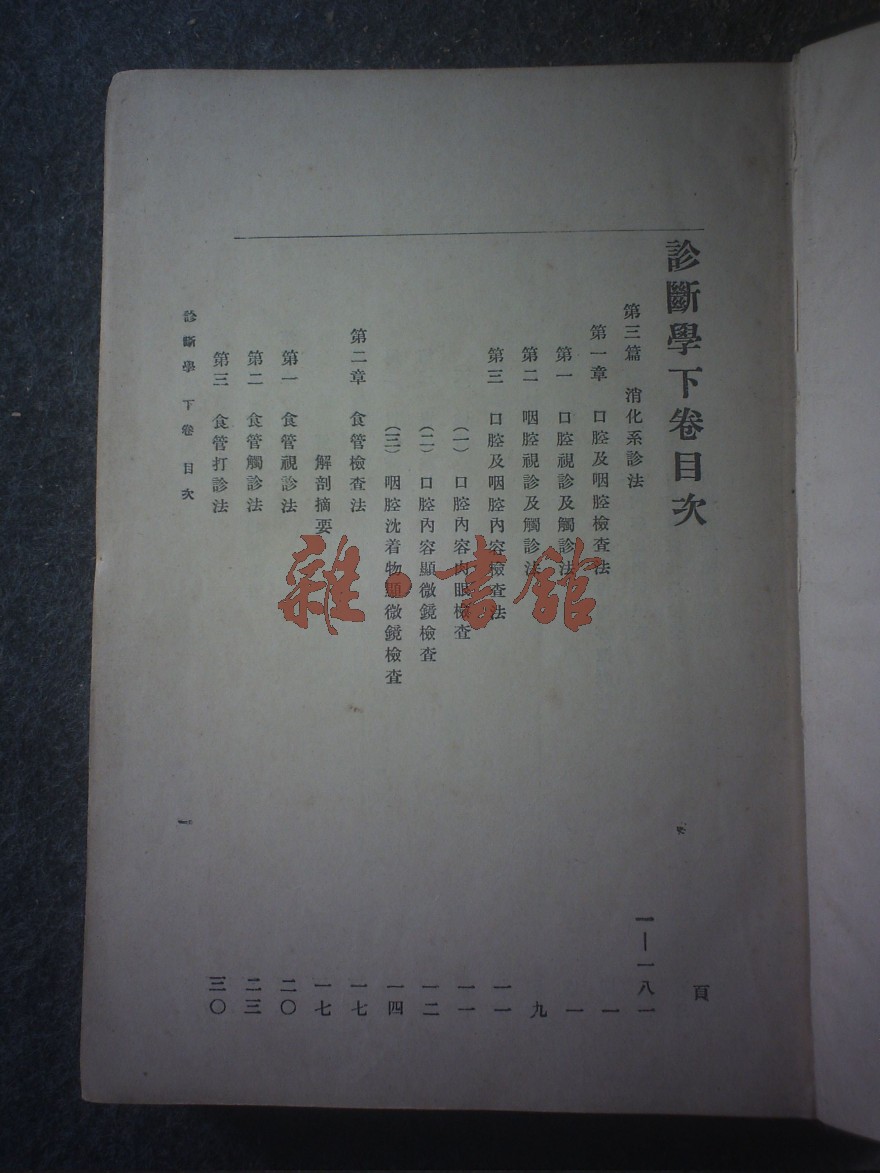 診斷學下卷目次
頁
第三篇 消化系診法 一—一八一
第一章 口腔及咽腔檢查法 一
第一 口腔視診及觸診法 一
第二 咽腔視診及觸診法 九
第三 口腔及咽腔內容檢查法 一一
(一) 口腔內容肉眼檢查 一一
(二) 口腔內容顯微鏡檢查 一二
(三) 咽腔沈着物顯微鏡檢查 一四
第二章 食管檢查法 一七
解剖摘要 一七
第一 食管視診法 二〇
第二 食管觸診法 二三
第三 食管打診法 三〇
診斷學 下卷 目次
一
雜·書館